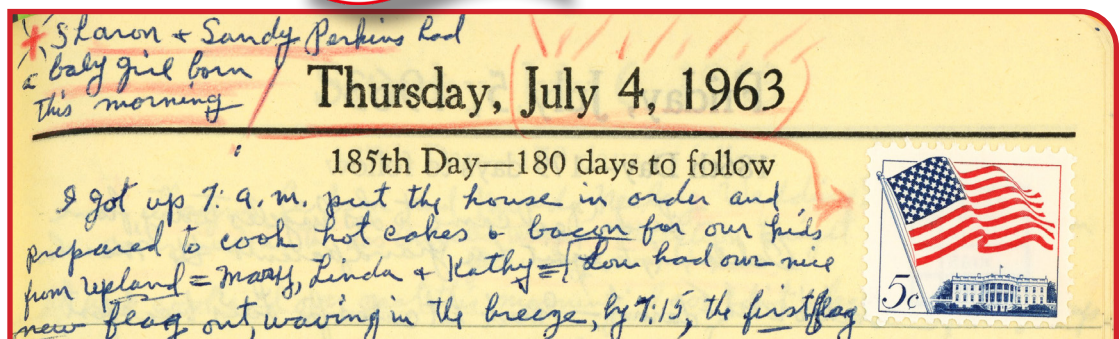 Sharon & Sandy Perkins had
a baby girl born
this morning
Thursday, July 4, 1963
185th Day—180 days to follow
I got up 7: a.m. put the house in order and
prepared to cook hot cakes & bacon for our kids
from Upland = Mary, Linda & Kathy = Lou had our nice
new flag out, waving in the breeze, by 7:15, the first flag
5c